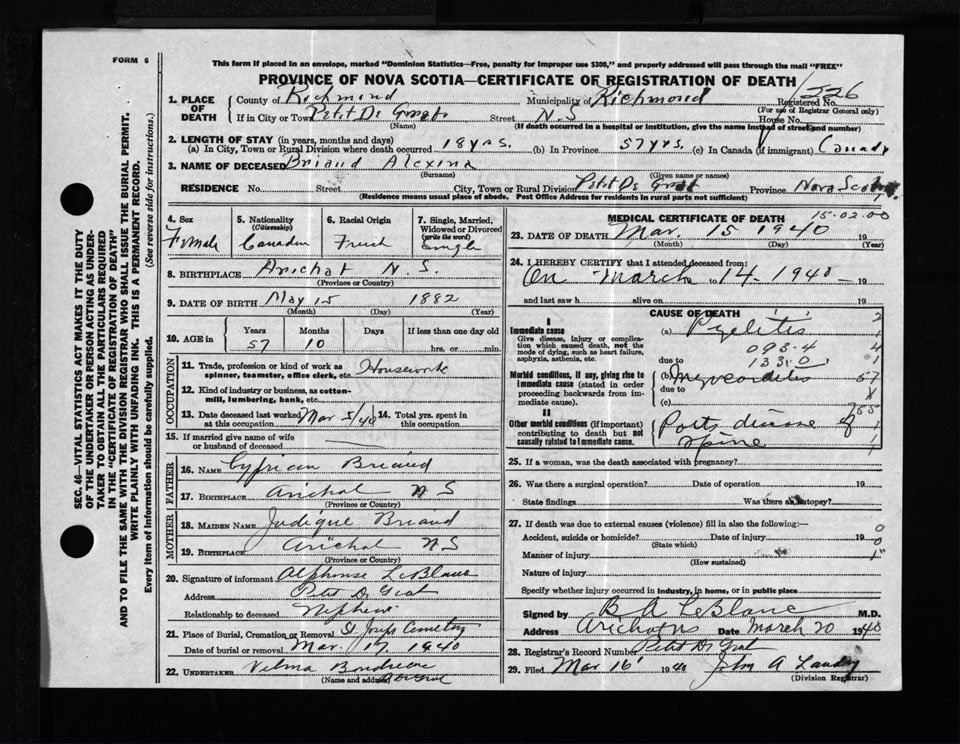 FORM 6
This form if placed in an envelope, marked "Dominion Statistics—Free, penalty for improper use $300," and properly addressed will pass through the mail "FREE"
PROVINCE OF NOVA SCOTIA—CERTIFICATE OF REGISTRATION OF DEATH
1. PLACE OF DEATH County of Richmond Municipality of Richmond Registered No. 1526
(For use of Registrar General only)
If in City or Town Petit De Grat Street N.S House No.
(Name) (If death occurred in a hospital or institution, give the name instead of street and number)
2. LENGTH OF STAY (in years, months and days)
(a) In City, Town or Rural Division where death occurred 18 yrs. (b) In Province 57 yrs. (c) In Canada (if immigrant) Canada
3. NAME OF DECEASED Briand Alexina
(Surname) (Given name or names)
RESIDENCE No. Street City, Town or Rural Division Petit De Grat Province Nova Scotia
(Residence means usual place of abode. Post Office Address for residents in rural parts not sufficient)
4. Sex 5. Nationality (Citizenship) 6. Racial Origin 7. Single, Married, Widowed or Divorced (write the word)
Female Canadian French Single
8. BIRTHPLACE Arichat N.S.
(Province or Country)
9. DATE OF BIRTH May 15 1882
(Month) (Day) (Year)
10. AGE in Years Months Days If less than one day old
57 10 hrs. or min.
OCCUPATION
11. Trade, profession or kind of work as spinner, teamster, office clerk, etc. Housework
12. Kind of industry or business, as cotton-mill, lumbering, bank, etc.
13. Date deceased last worked at this occupation Mar 5/40 14. Total yrs. spent in this occupation
15. If married give name of wife or husband of deceased
FATHER
16. NAME Cyprian Briand
17. BIRTHPLACE Arichat N S
(Province or Country)
MOTHER
18. MAIDEN NAME Judique Briand
19. BIRTHPLACE Arichat N S
(Province or Country)
20. Signature of informant Alphonse LeBlanc
Address Petit De Grat
Relationship to deceased Nephew
21. Place of Burial, Cremation or Removal St Josephs Cemetery
Date of burial or removal Mar. 17 1940
22. UNDERTAKER Velma Boudreau
(Name and address)
MEDICAL CERTIFICATE OF DEATH
15-02-00
23. DATE OF DEATH Mar. 15 1940 19
(Month) (Day) (Year)
24. I HEREBY CERTIFY that I attended deceased from:
On March to 14-1940- 19
and last saw h alive on 19
CAUSE OF DEATH
I
Immediate cause (a) Pyelitis
Give disease, injury or complication which caused death, not the mode of dying, such as heart failure, asphyxia, asthenia, etc.
093.4
due to 133.0
Morbid conditions, if any, giving rise to immediate cause (stated in order proceeding backwards from immediate cause). (b) Myocarditis
due to
(c)
II
Other morbid conditions (if important) contributing to death but not causally related to immediate cause. Potts disease of spine
25. If a woman, was the death associated with pregnancy?
26. Was there a surgical operation? Date of operation 19
State findings Was there an autopsy?
27. If death was due to external causes (violence) fill in also the following:—
Accident, suicide or homicide? Date of injury 19
(State which)
Manner of injury
(How sustained)
Nature of injury
Specify whether injury occurred in industry, in home, or in public place
Signed by B A LeBlanc M.D.
Address Arichat NS Date March 20 1940
28. Registrar's Record Number Petit De Grat
29. Filed Mar 16 1940 John A Landry
(Division Registrar)
SEC. 46—VITAL STATISTICS ACT MAKES IT THE DUTY
OF THE UNDERTAKER OR PERSON ACTING AS UNDER-
TAKER TO OBTAIN ALL THE PARTICULARS REQUIRED
IN THE "CERTIFICATE OF REGISTRATION OF DEATH"
AND TO FILE THE SAME WITH THE DIVISION REGISTRAR WHO SHALL ISSUE THE BURIAL PERMIT.
WRITE PLAINLY WITH UNFADING INK. THIS IS A PERMANENT RECORD.
Every item of Information should be carefully supplied. (See reverse side for instructions.)